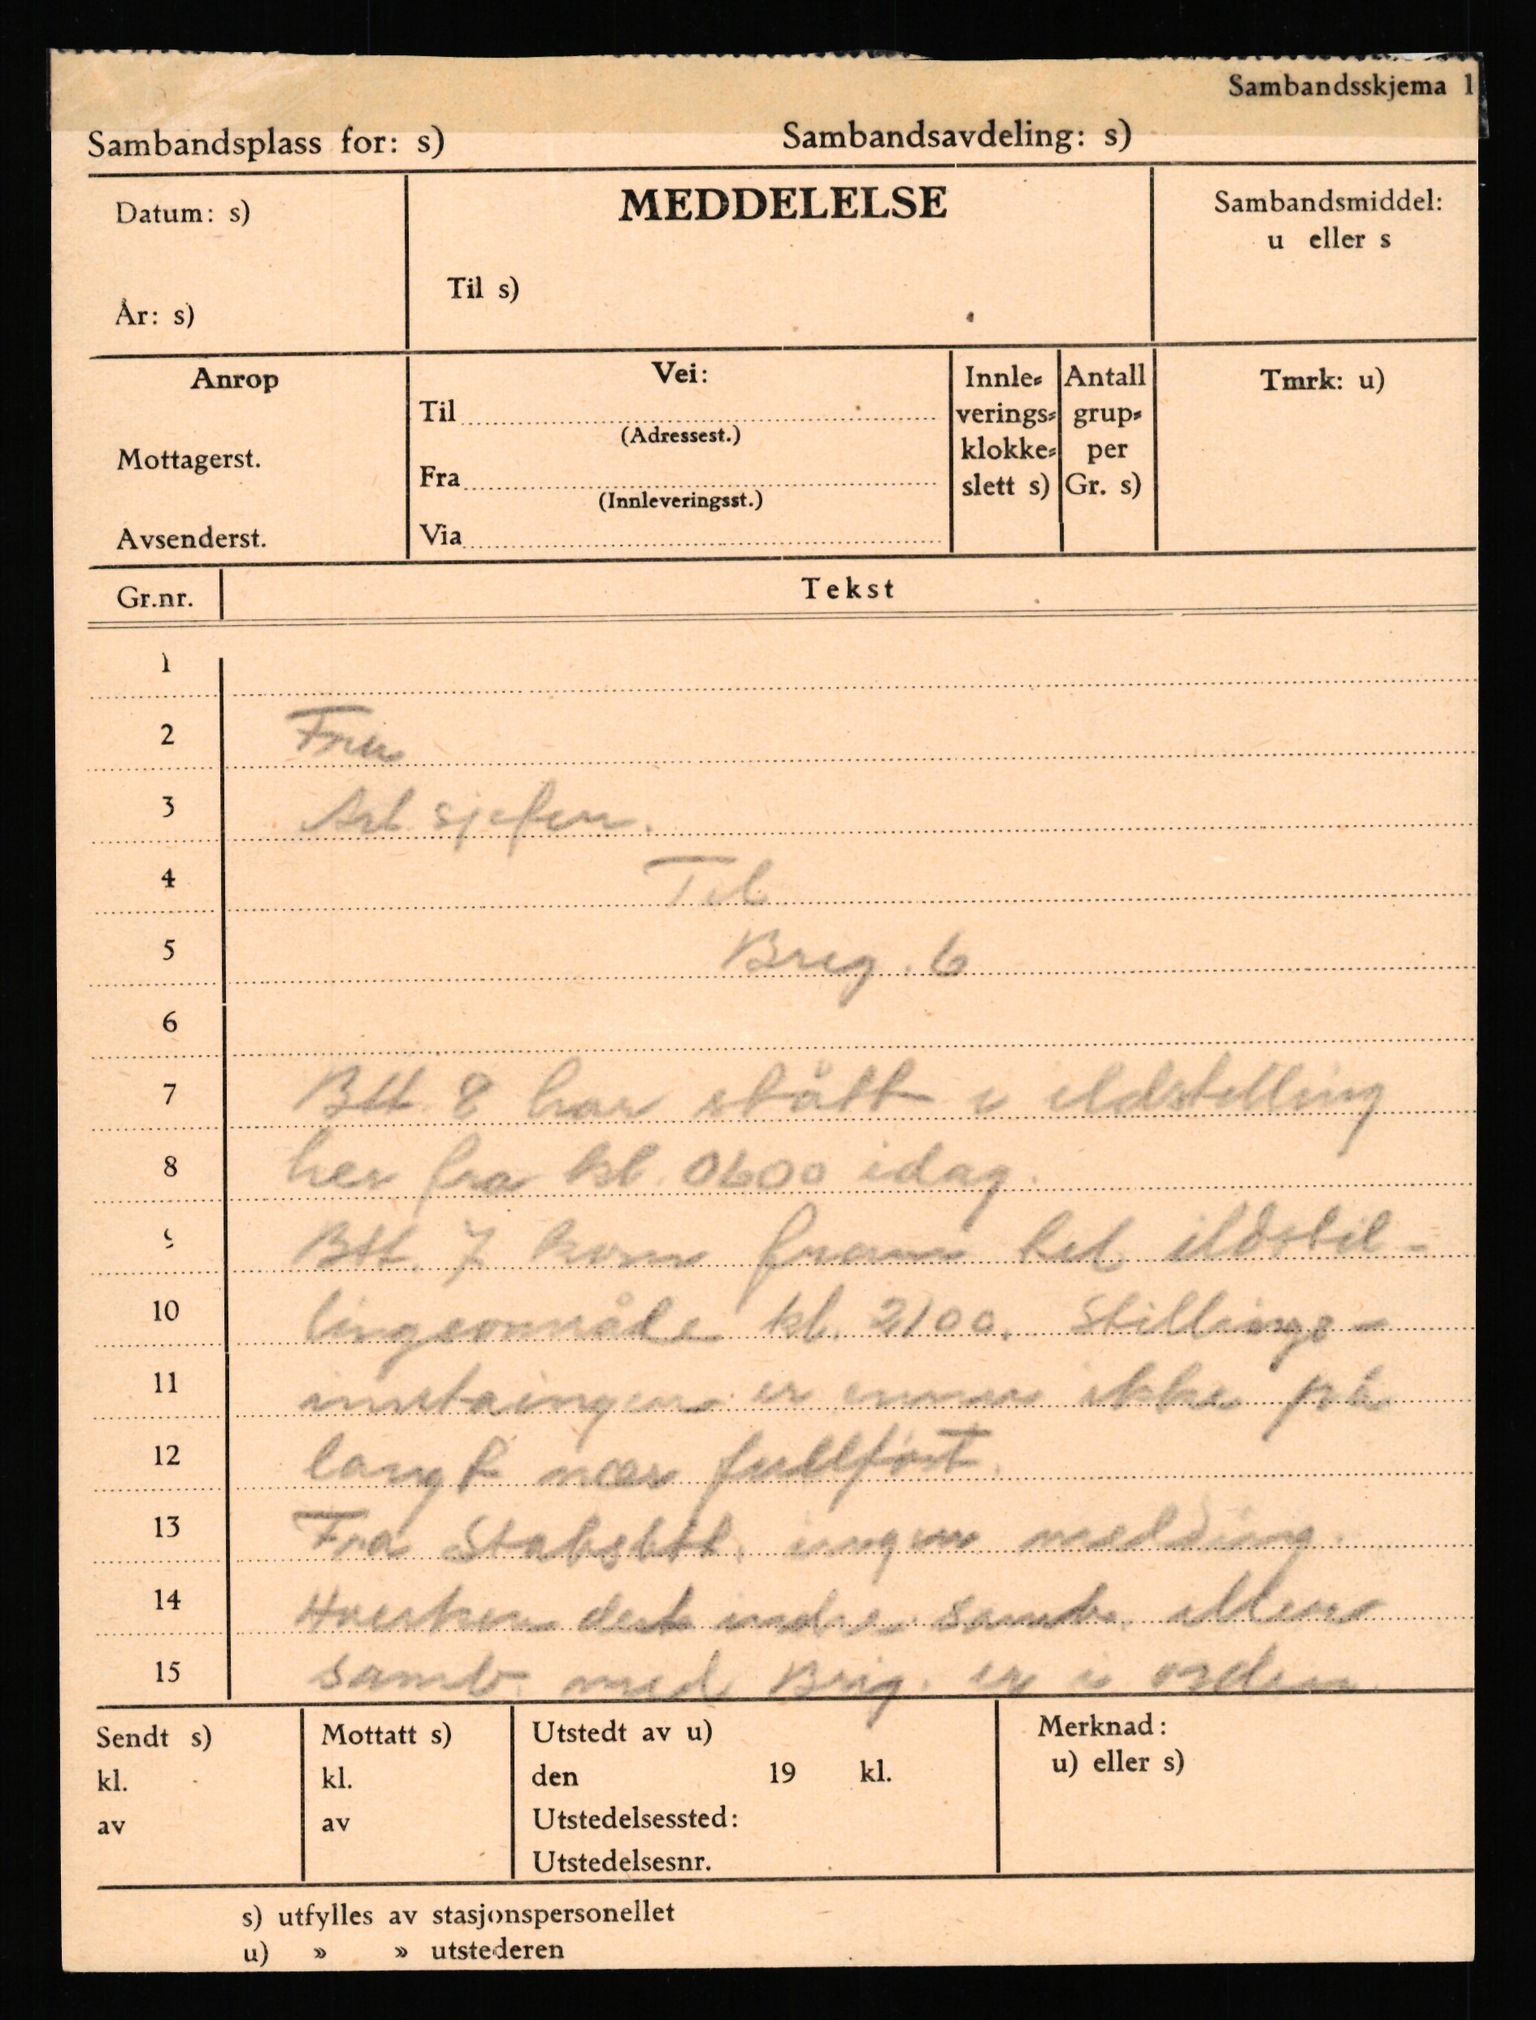 Sambandsskjema 1
Sambandsplass for: s) Sambandsavdeling: s)
Datum: s)
År: s)
MEDDELELSE
Til s)
Sambandsmiddel:
u eller s
Anrop
Mottagerst.
Avsenderst.
Vei:
Til
(Adressest.)
Fra
(Innleveringsst.)
Via
Innle-
verings-
klokke-
slett s)
Antall
grup-
per
Gr. s)
Tmrk: u)
Gr.nr. Tekst
1
2 Fra
3 Art sjefen.
4 Til
5 Brig. 6
6
7 Btt. 8 har stått i ildstilling
8 her fra kl. 0600 idag.
9 Btt. 7 kom fram til ildstil-
10 lingsområde kl. 2100. Stillings-
11 inntaingen er ennu ikke på
12 langt nær fullført.
13 Fra Stabsbtt. ingen melding.
14 Hverken det indre samb. eller
15 samb. med Brig. er i orden.
Sendt s)
kl.
av
Mottatt s)
kl.
av
Utstedt av u)
den 19 kl.
Utstedelsessted:
Utstedelsesnr.
Merknad:
u) eller s)
s) utfylles av stasjonspersonellet
u) » » utstederen